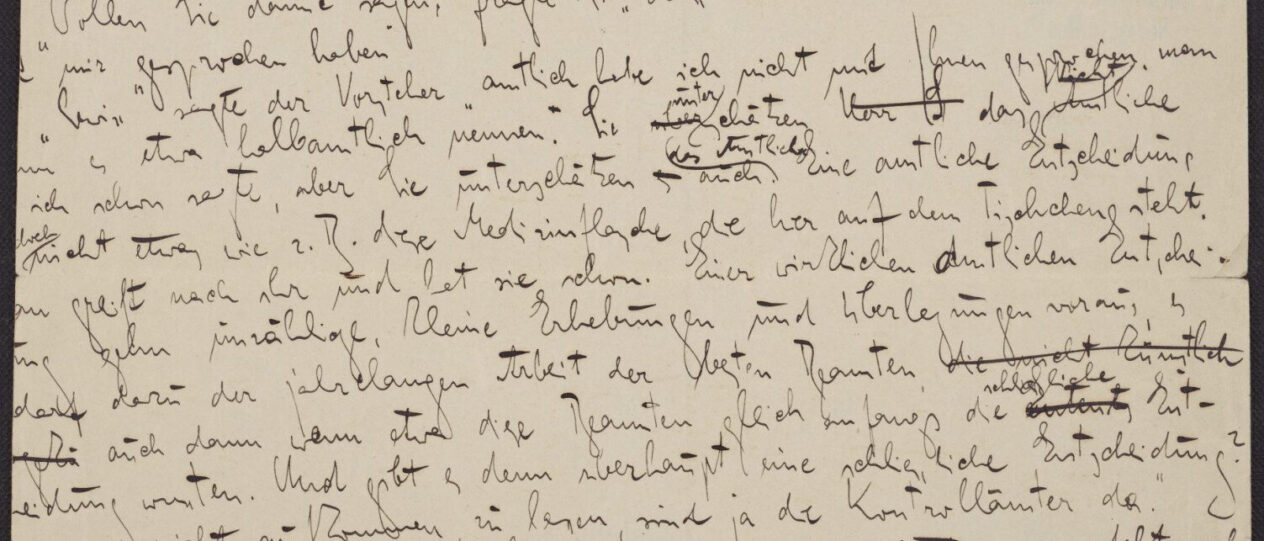 "Wollen Sie damit sagen, fragte
mir gesprochen haben"
"Gewiss" sagte der Vorsteher "amtlich habe ich nicht mit Ihnen gesprochen, man
es etwa halbamtlich nennen. Sie unterschätzen das Amtliche
ich schon sagte, aber Sie unterschätzen das Amtliche auch. Eine amtliche Entscheidung
nicht etwas wie z. B. diese Medizinflasche, die hier auf dem Tischchen steht.
greift nach ihr und hat sie schon. Einer wirklichen amtlichen Entschei-
ung gehn unzählige, kleine Erhebungen und Überlegungen voraus, es
darf dazu der jahrelangen Arbeit der besten Beamten, die nicht künstlich
auch dann wenn etwa diese Beamten gleich anfangs die schliessliche Ent-
eidung wussten. Und gibt es denn überhaupt eine schliessliche Entscheidung?
kommen zu lassen, sind ja die Kontrollämter da."